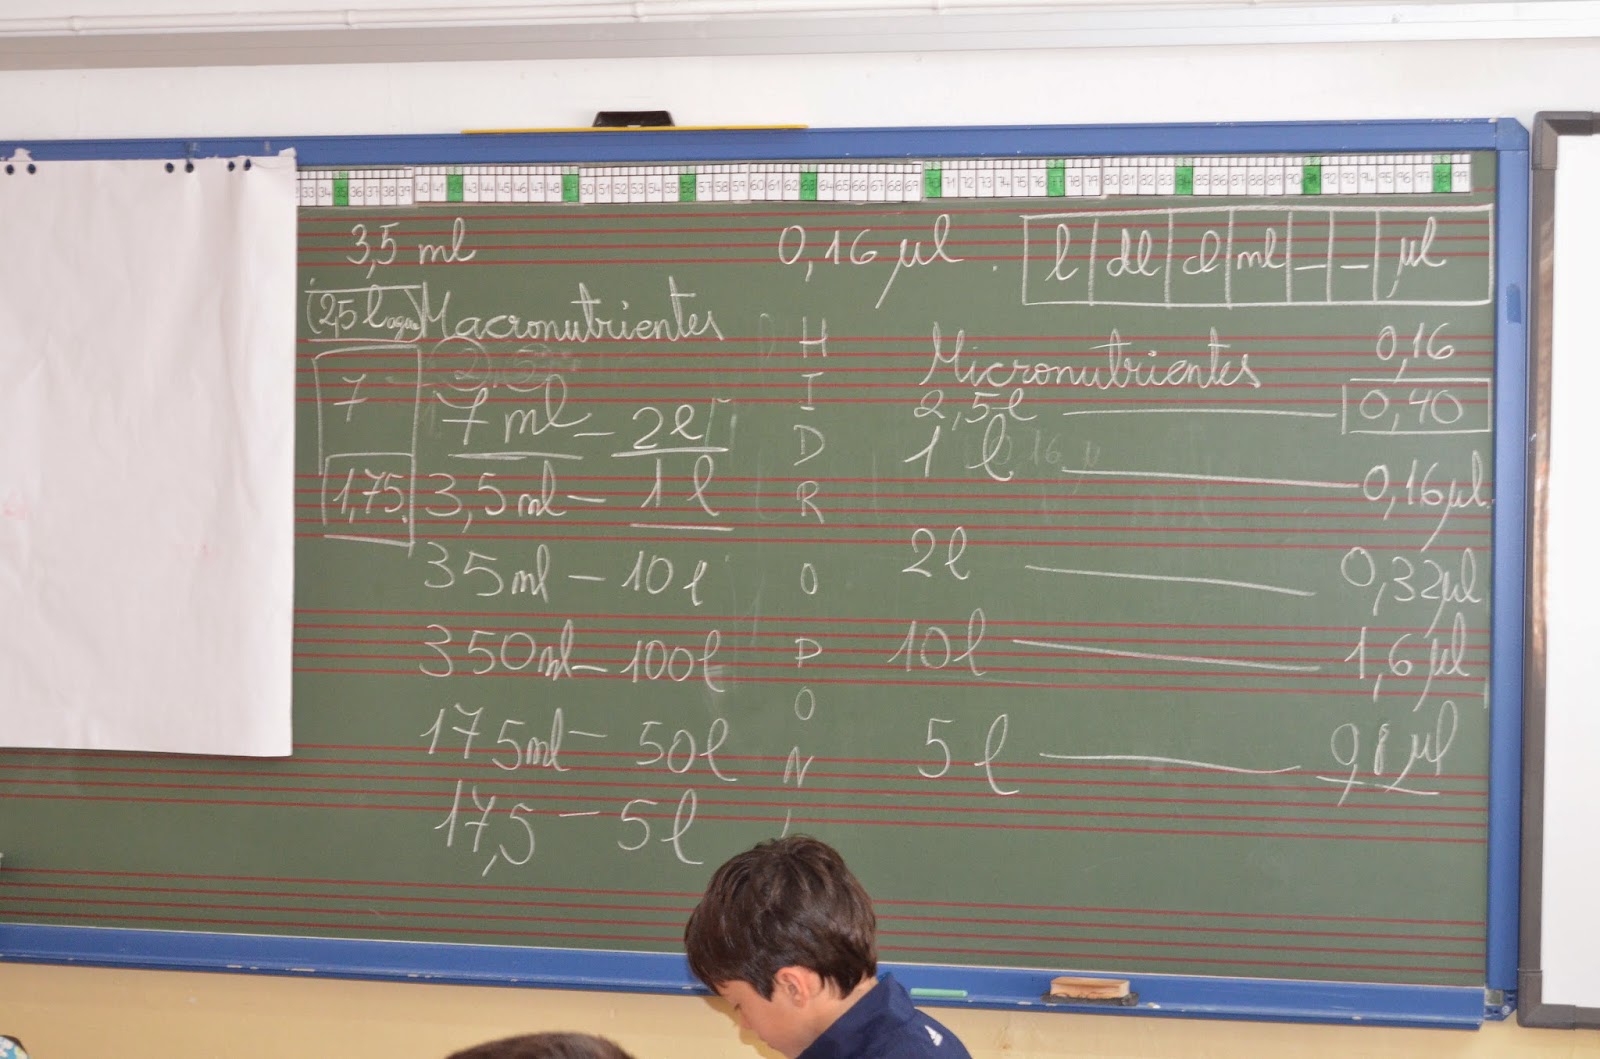 33 34 35 36 37 38 39 40 41 42 43 44 45 46 47 48 49 50 51 52 53 54 55 56 57 58 59 60 61 62 63 64 65 66 67 68 69 70 71 72 73 74 75 76 77 78 79 80 81 82 83 84 85 86 87 88 89 90 91 92 93 94 95 96 97 98 99
3,5 ml
(2,5 l agua) Macronutrientes
7
7 ml – 2l
1,75 3,5 ml – 1 l
35 ml – 10 l
350 ml – 100 l
175 ml – 50 l
17,5 – 5 l
H
I
D
R
O
P
O
N
0,16 µl . l dl cl ml _ _ µl
Micronutrientes 0,16
2,5 l 0,40
1 l 0,16 µl
2 l 0,32 µl
10 l 1,6 µl
5 l 0,8 µl